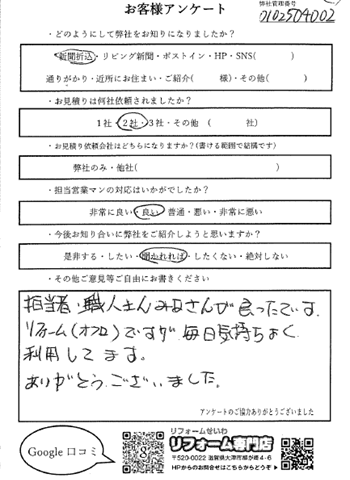 お客様アンケート
弊社管理番号
0102504002
・どのようにして弊社をお知りになりましたか?
新聞折込・リビング新聞・ポストイン・HP・SNS( )
通りがかり・近所にお住まい・ご紹介( 様)・その他( )
・お見積りは何社依頼されましたか?
1社・2社・3社・その他 ( 社)
・お見積り依頼会社はどちらになりますか?(書ける範囲で結構です)
弊社のみ・他社( )
・担当営業マンの対応はいかがでしたか?
非常に良い・良い・普通・悪い・非常に悪い
・今後お知り合いに弊社をご紹介しようと思いますか?
是非する・したい・聞かれれば・したくない・絶対しない
・その他ご意見等ご自由にお書きください
担当者、職人さんみなさんが良ったです。
リフォーム(オフロ)ですが、毎日気持ちよく
利用してます。
ありがとうございました。
アンケートのご協力ありがとうございました
Google 口コミ
リフォームせいわ
リフォーム専門店
〒520-0022 滋賀県大津市柳が崎4-6
HPからのお問合せはこちらからどうぞ▶